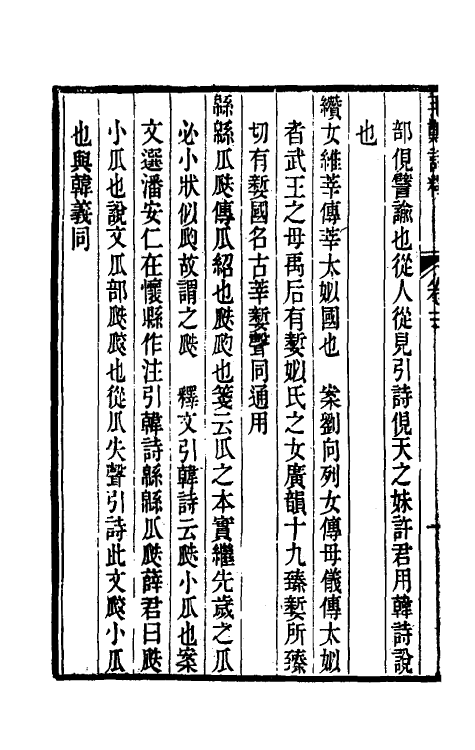 部俔譬諭也從人從見引詩俔天之妹許君用韓詩說
也
纘女維莘傳莘太姒國也　案劉向列女傳母儀傳太姒
者武王之母禹后有㜪姒氏之女廣韻十九臻㜪所臻
切有㜪國名古莘㜪聲同通用
緜緜瓜瓞傳瓜紹也瓞瓝也箋云瓜之本實繼先歲之瓜
必小狀似瓝故謂之瓞　釋文引韓詩云瓞小瓜也案
文選潘安仁在懷縣作注引韓詩緜緜瓜瓞薛君曰瓞
小瓜也說文瓜部瓞瓝也從瓜失聲引詩此文瓝小瓜
也與韓義同